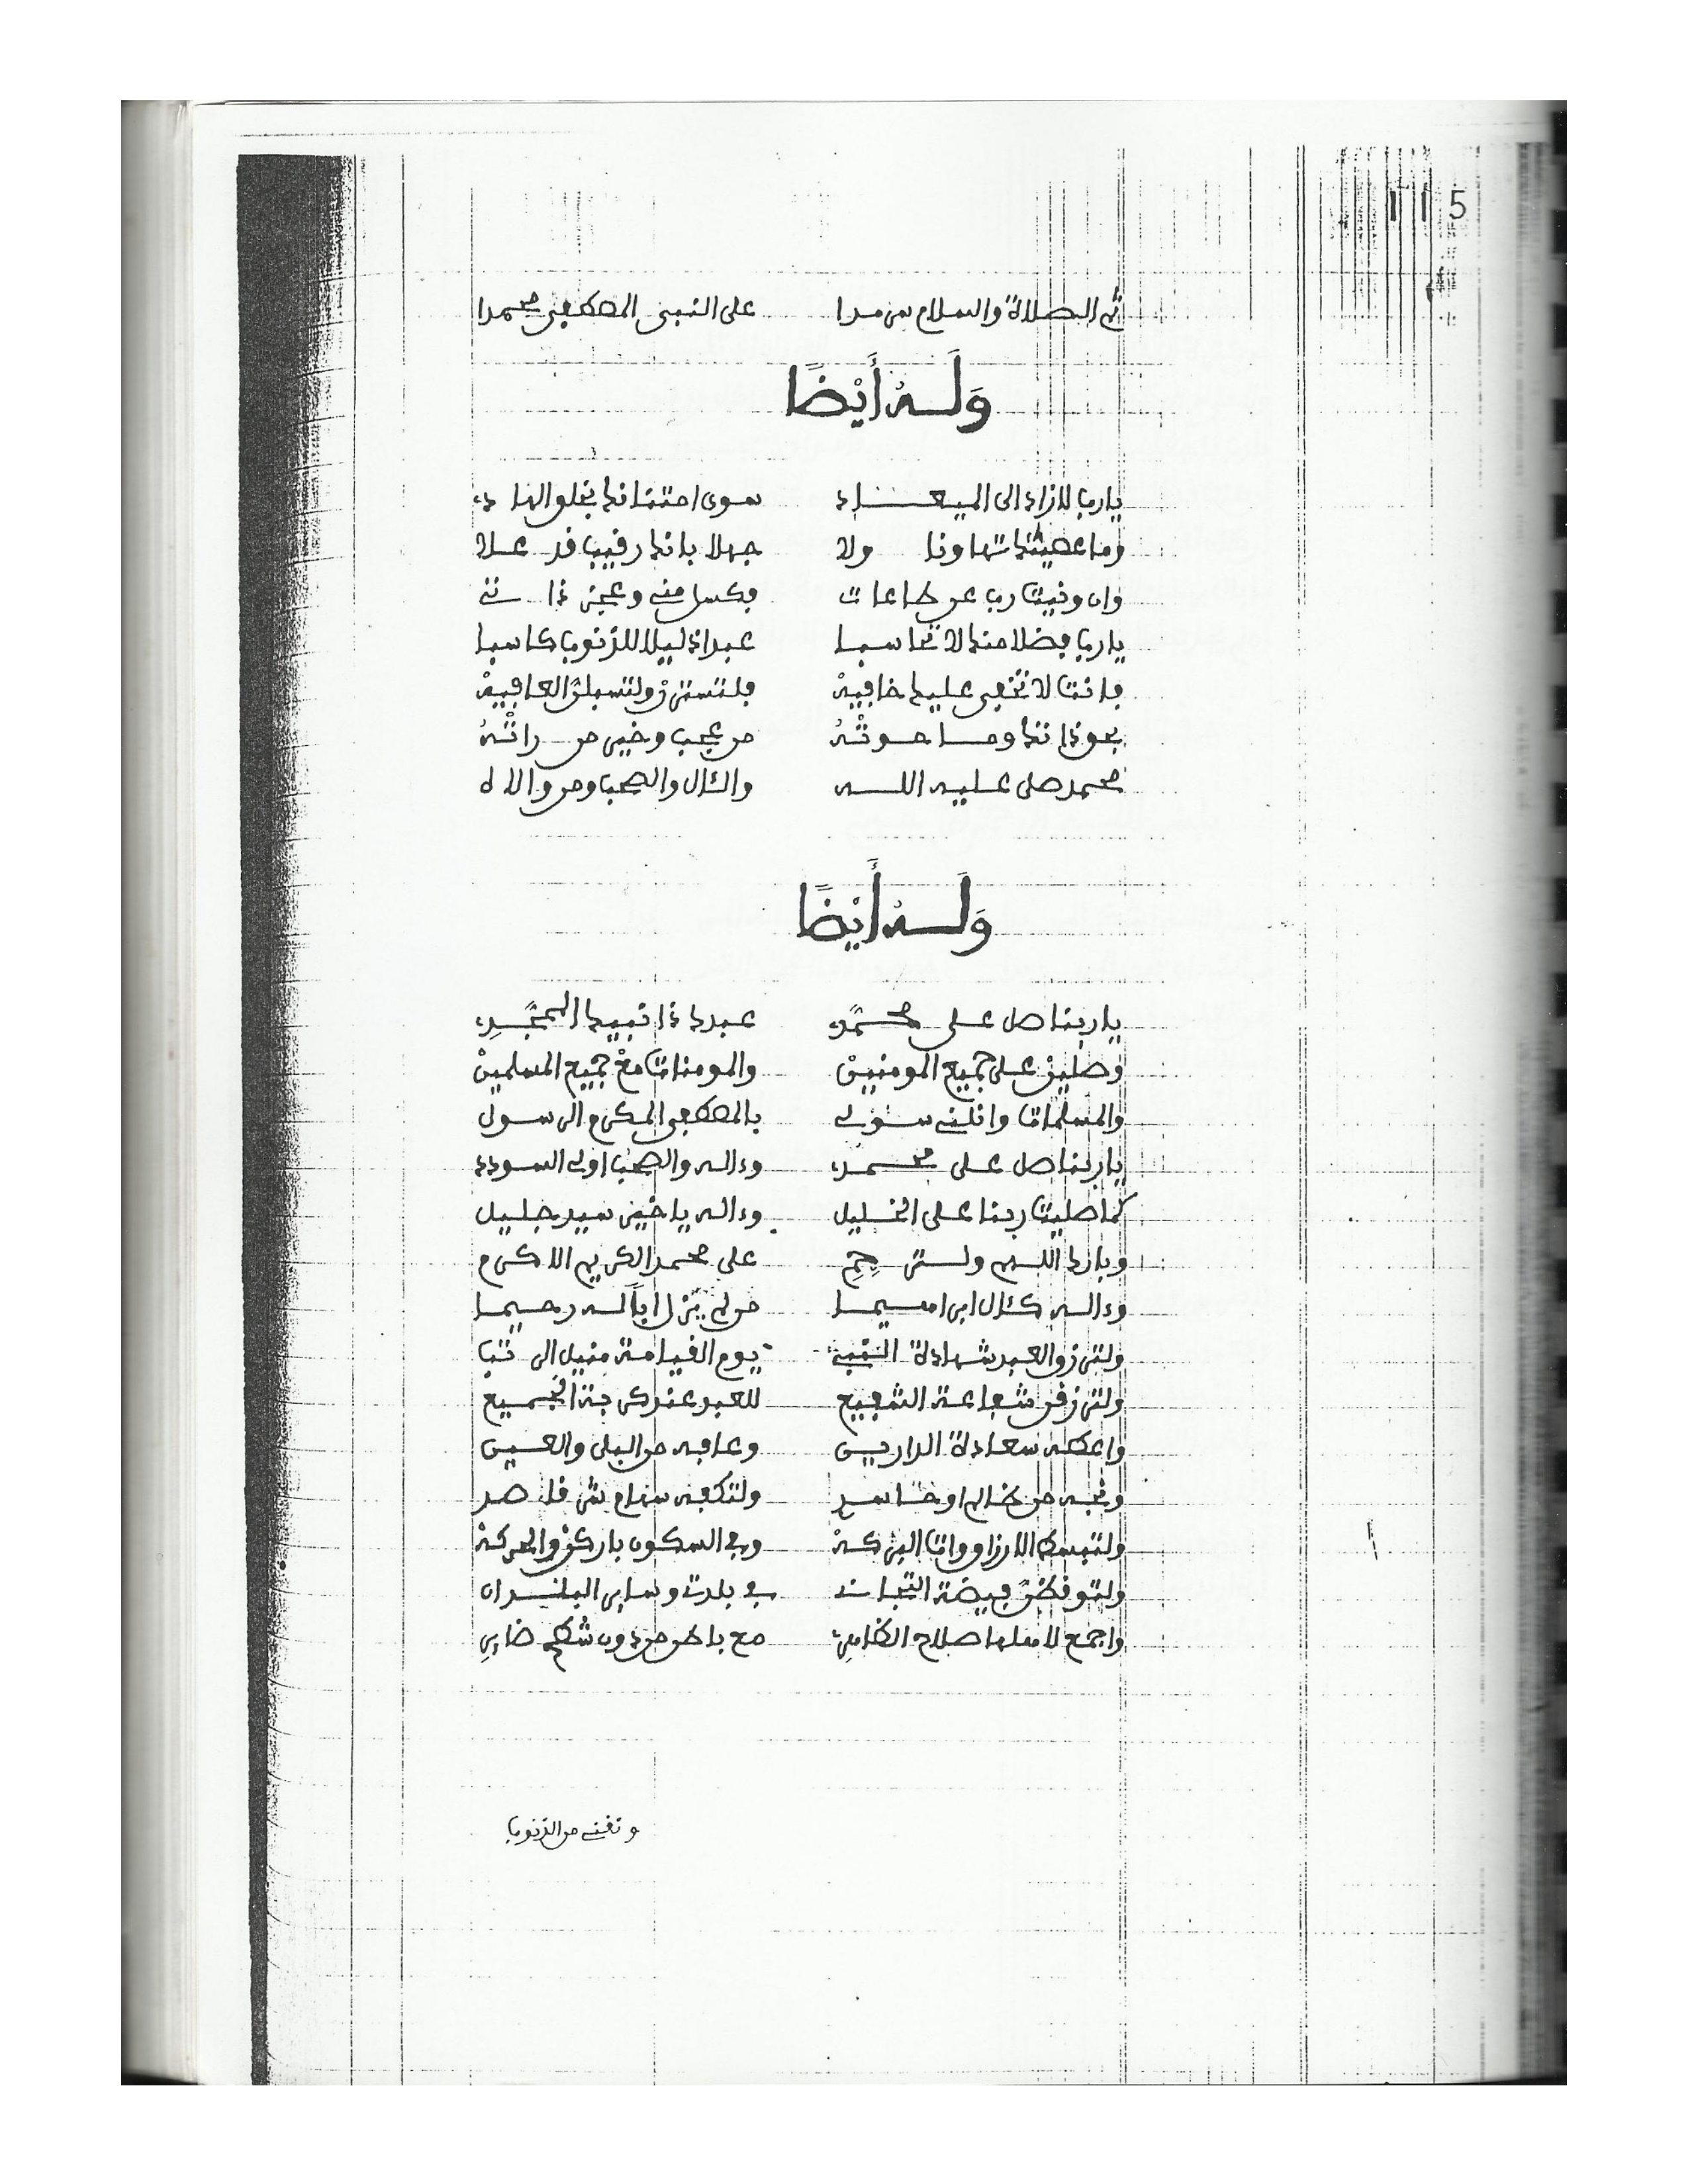 115
ثم الصلاة والسلام سرمدا على النبي المصطفى محمدا
وَلَهُ أَيْضًا
يا رب لا زاد الى الميعاد سوى امتنانك بخلق الهاد
وما عصيتك تهاونا ولا جهلا بانك رقيب قد علا
وان ونيت رب عن طاعات فكسل مني وعجز ذاتي
يا رب فضلا منك لا تحاسبا عبدا ذليلا للذنوب كاسبا
فانت لا تخفى عليك خافيهْ فلتسترنْ ولتسبلنَّ العافيهْ
بحق ذاتك وما حوتْهُ من عجب وخير من راتْهُ
محمد صلى عليه الله والئال والصحب ومن والاه
وَلَهُ أَيْضًا
يا ربنا صل على محمَّد عبدك ذا نبيك الممجَّدِ
وصلين على جميع المومنينْ والمومنات معْ جميع المسلمينْ
والمسلمات وانلني سولي بالمصطفى المكرم الرسول
يا ربنا صل على محمد وءاله والصحب اولي السودد
كما صليت ربنا على الخليل وءاله يا خير سيد جليل
وبارك اللهم ولترحِّمِ على محمد الكريم الاكرم
وءاله كئال ابراهيما من لم يزل أبا له رحيما
ولترزق العبد شهادة النبي يوم القيامة منيل الرتب
ولترزقن شفاعة الشفيع للعبد عندكربة الجميع
واعطه سعادة الدارين وعافه من البلى والعين
ونجه من ظالم او حاسد ولتكفه سهام شر قاصد
ولتبسط الارزاق وات البركهْ وفي السكون باركنْ والحركهْ
ولتوقظنَّ فيضة التجاني في بلدتي وساير البلدان
واجمع لاهلها صلاح الظاهر مع باطن من دون شطح ضايرِ
وتقني من الذنوب